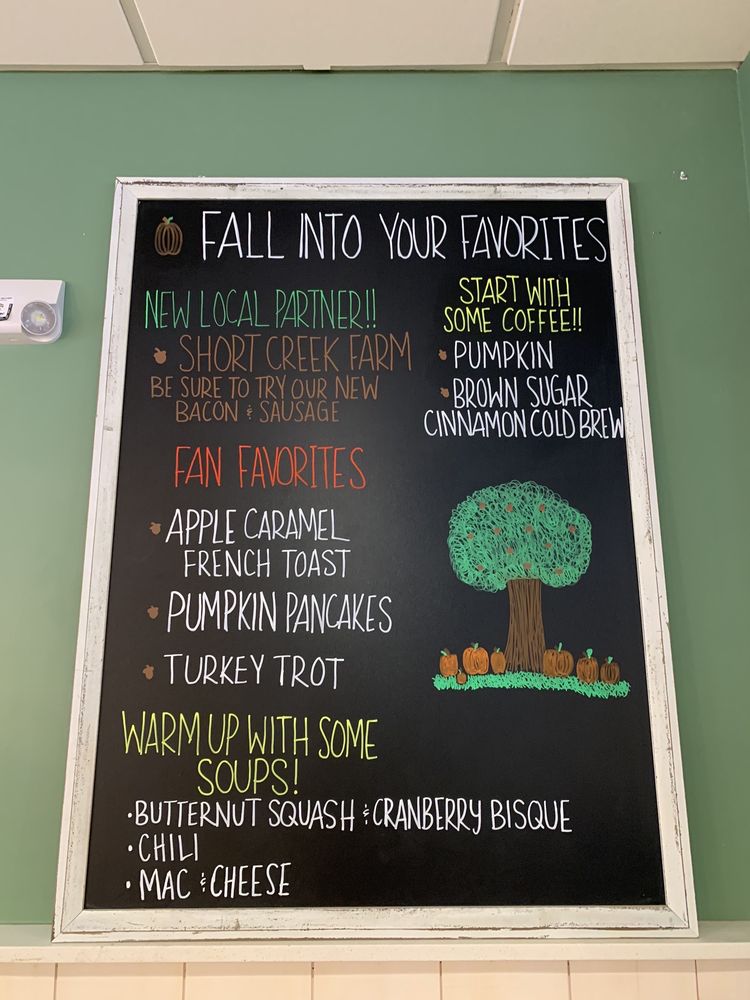 FALL INTO YOUR FAVORITES
NEW LOCAL PARTNER!!
• SHORT CREEK FARM
BE SURE TO TRY OUR NEW
BACON & SAUSAGE
START WITH
SOME COFFEE!!
• PUMPKIN
• BROWN SUGAR
CINNAMON COLD BREW
FAN FAVORITES
• APPLE CARAMEL
FRENCH TOAST
• PUMPKIN PANCAKES
• TURKEY TROT
WARM UP WITH SOME
SOUPS!
• BUTTERNUT SQUASH & CRANBERRY BISQUE
• CHILI
• MAC & CHEESE